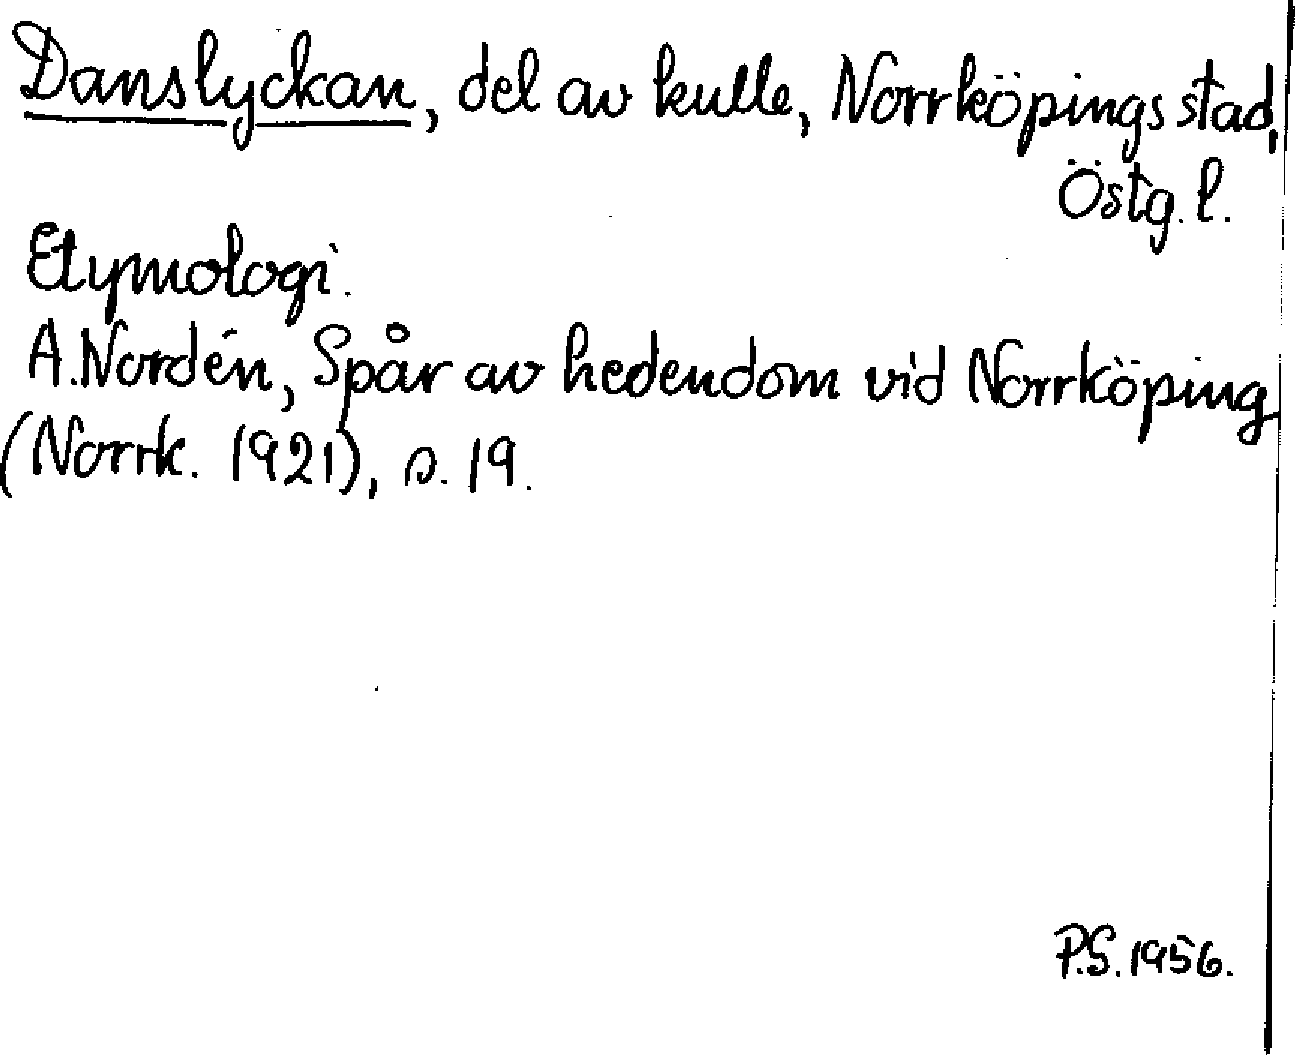 Danslyckan, del av kulle, Norrköpings stad,
Östg. l.
Etymologi.
A. Nordén, Spår av hedendom vid Norrköping
(Norrk. 1921), s. 19.
P.S. 1956.